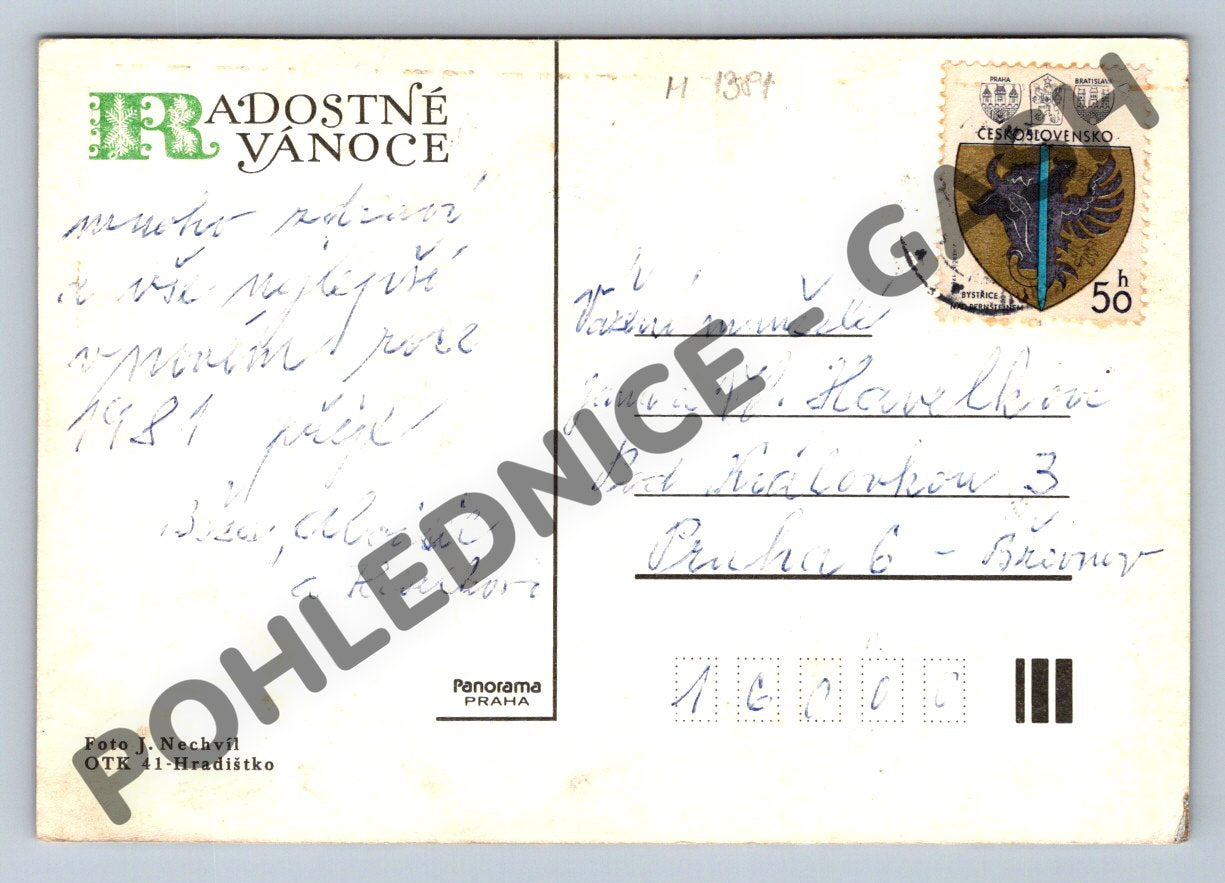 RADOSTNÉ
VÁNOCE
mnoho zdraví
a vše nejlepší
v novém roce
1981 přeje
Boža,
a
Panorama
PRAHA
Foto J. Nechvíl
OTK 41-Hradištko
M-1381
PRAHA
BRATISLAVA
ČESKOSLOVENSKO
BYSTŘICE
NAD PERNŠTEJNEM
50 h
Vážení manželé
Havelkovi
Pod Královkou 3
Praha 6 - Břevnov
16000
POHLEDNICE - GALANT